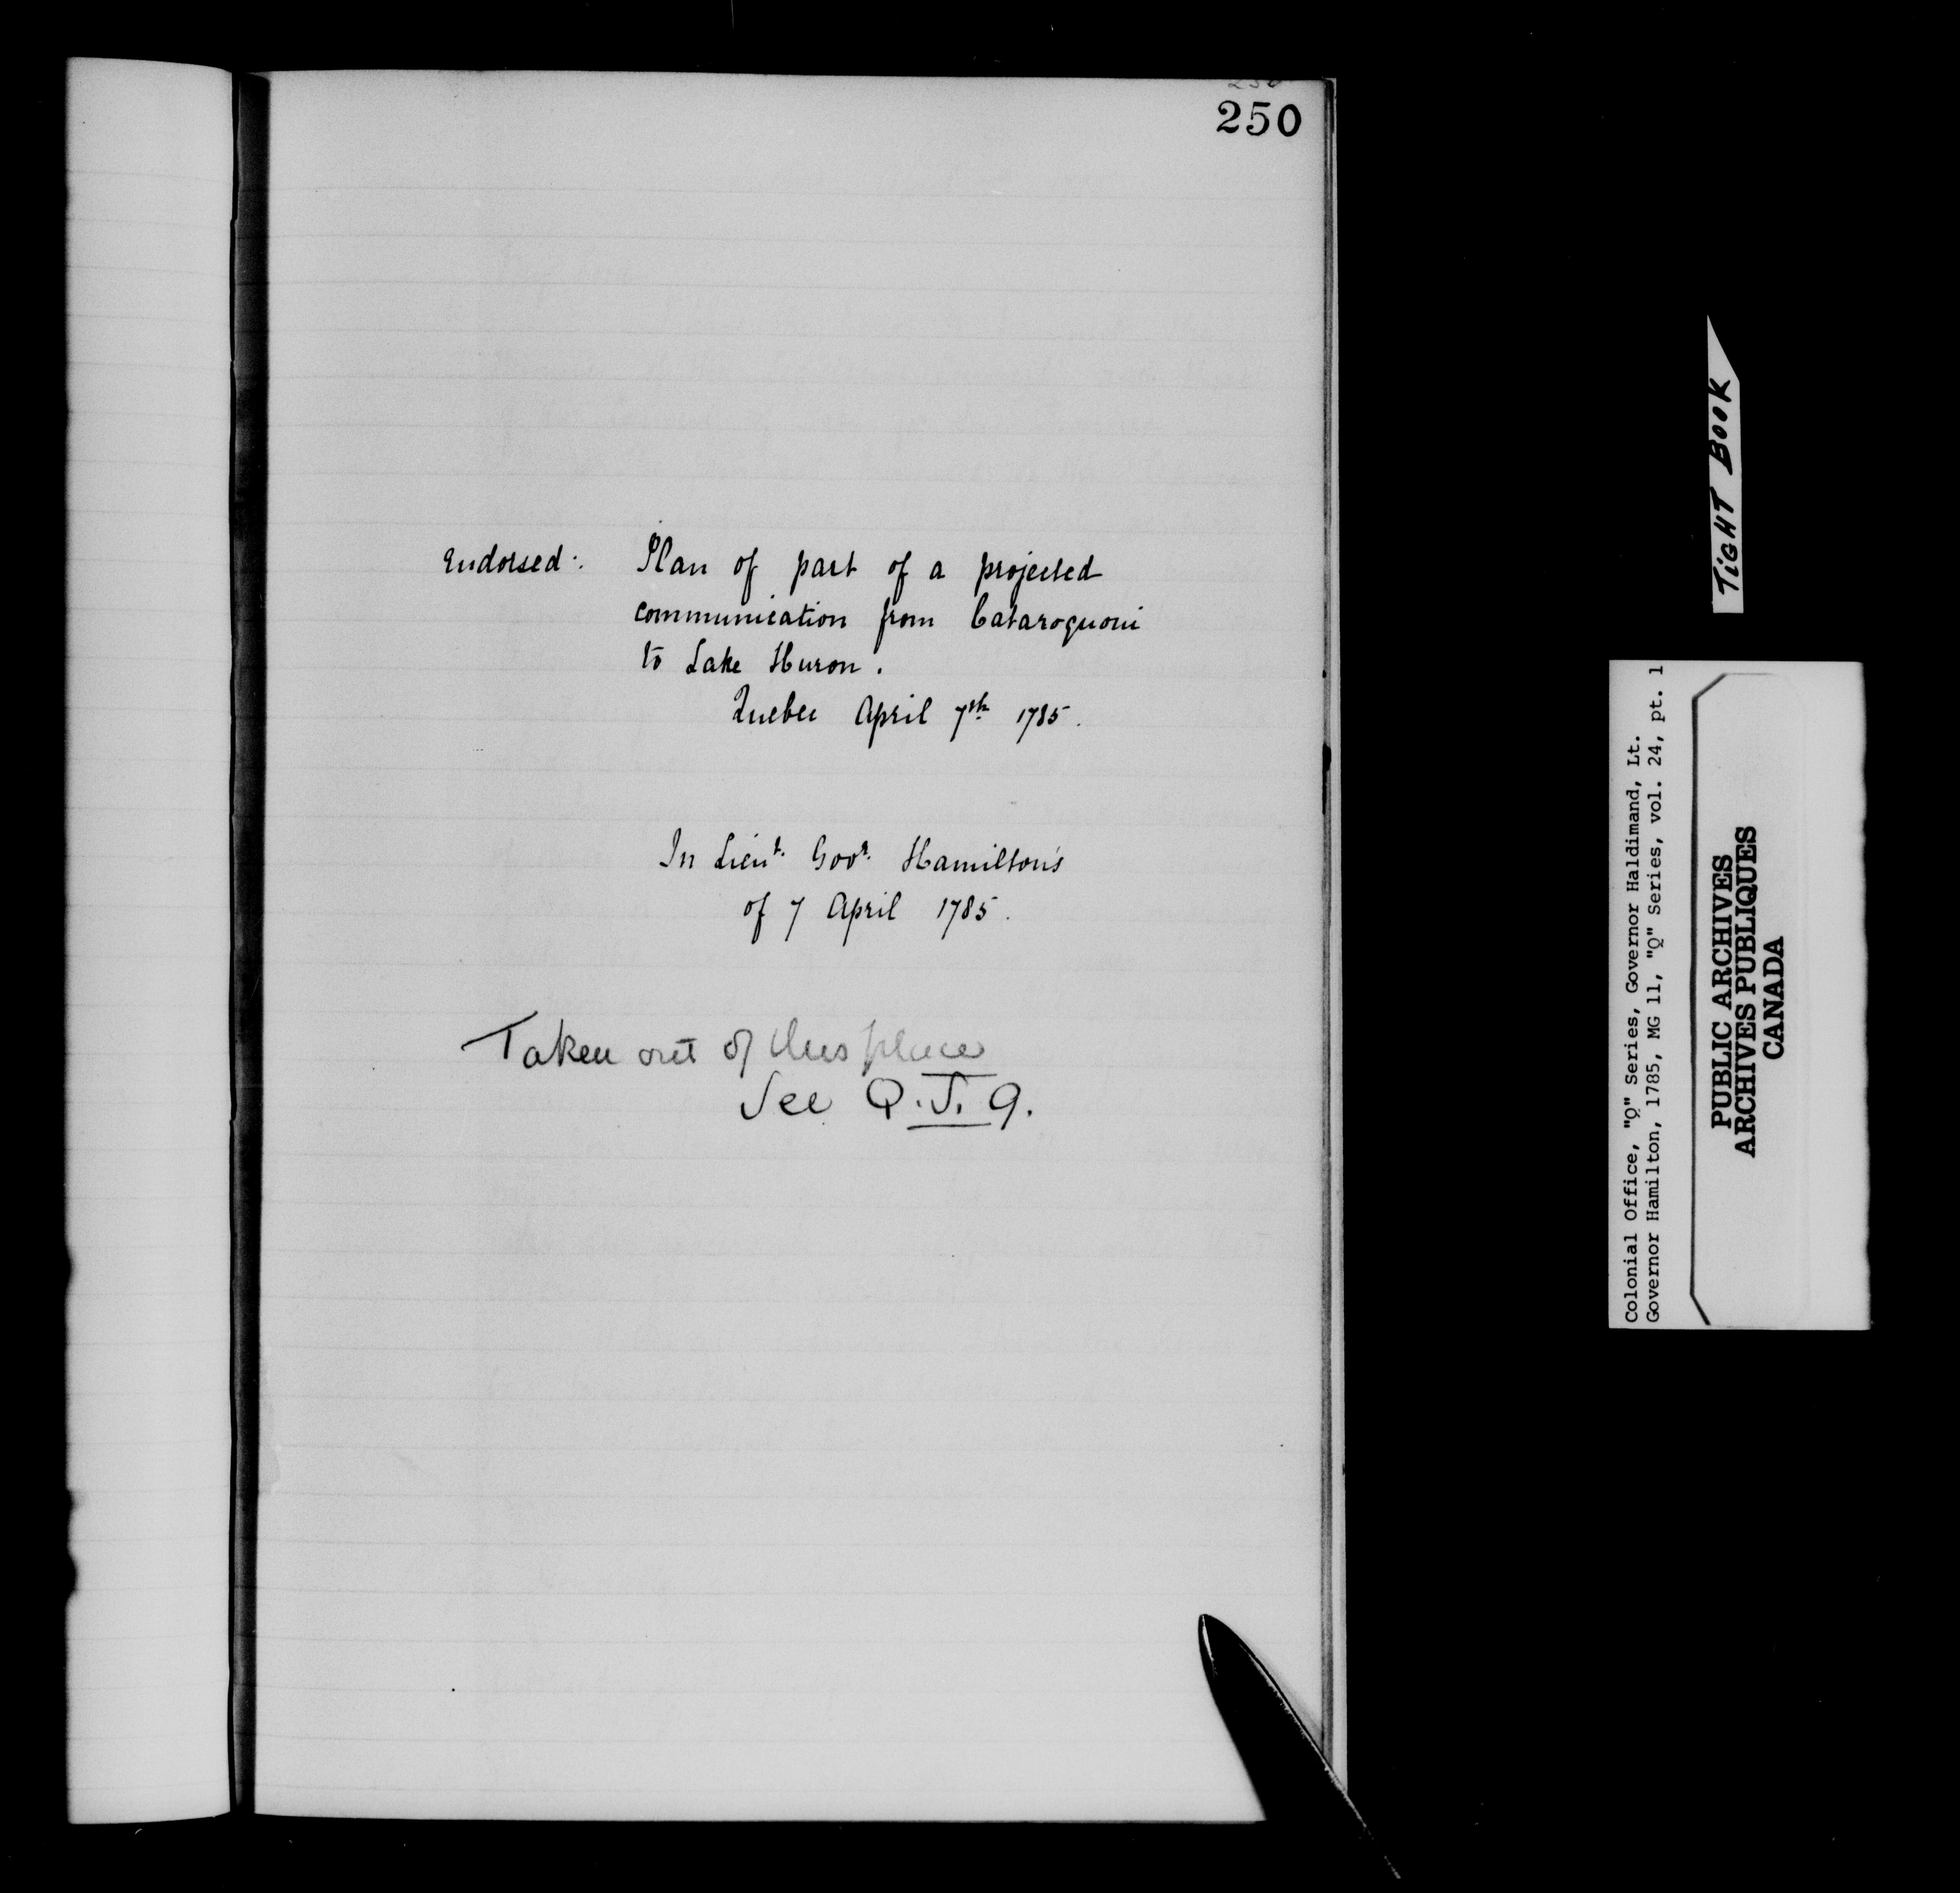 250
Endorsed: Plan of part of a projected
communication from Cataroquoui
to Lake Huron.
Quebec April 7th 1785.
In Lieut. Govr. Hamilton's
of 7 April 1785.
Taken out of this place
See Q. T. 9.
TIGHT BOOK
Colonial Office, "Q" Series, Governor Haldimand, Lt.
Governor Hamilton, 1785, MG 11, "Q" Series, vol. 24, pt. 1
PUBLIC ARCHIVES
ARCHIVES PUBLIQUES
CANADA